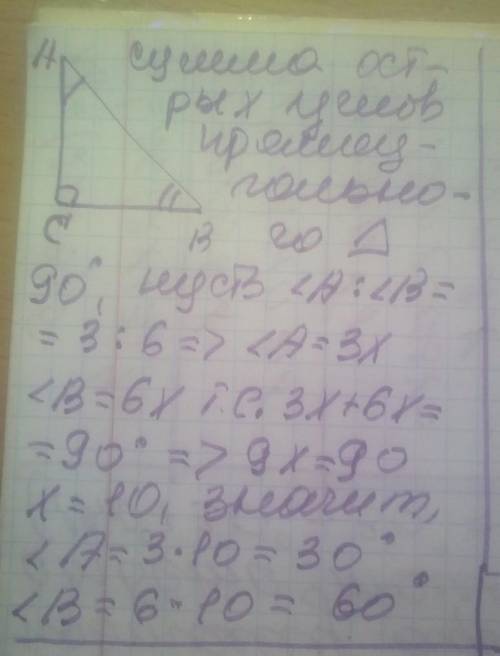 A сумма ост-
рых углов
прямоу-
гольно-
C B го △
90°, пусть <A:<B=
= 3:6 => <A=3x
<B=6x т.е. 3x+6x=
=90° => 9x=90
x=10, значит,
<A=3·10=30°
<B=6·10= 60°